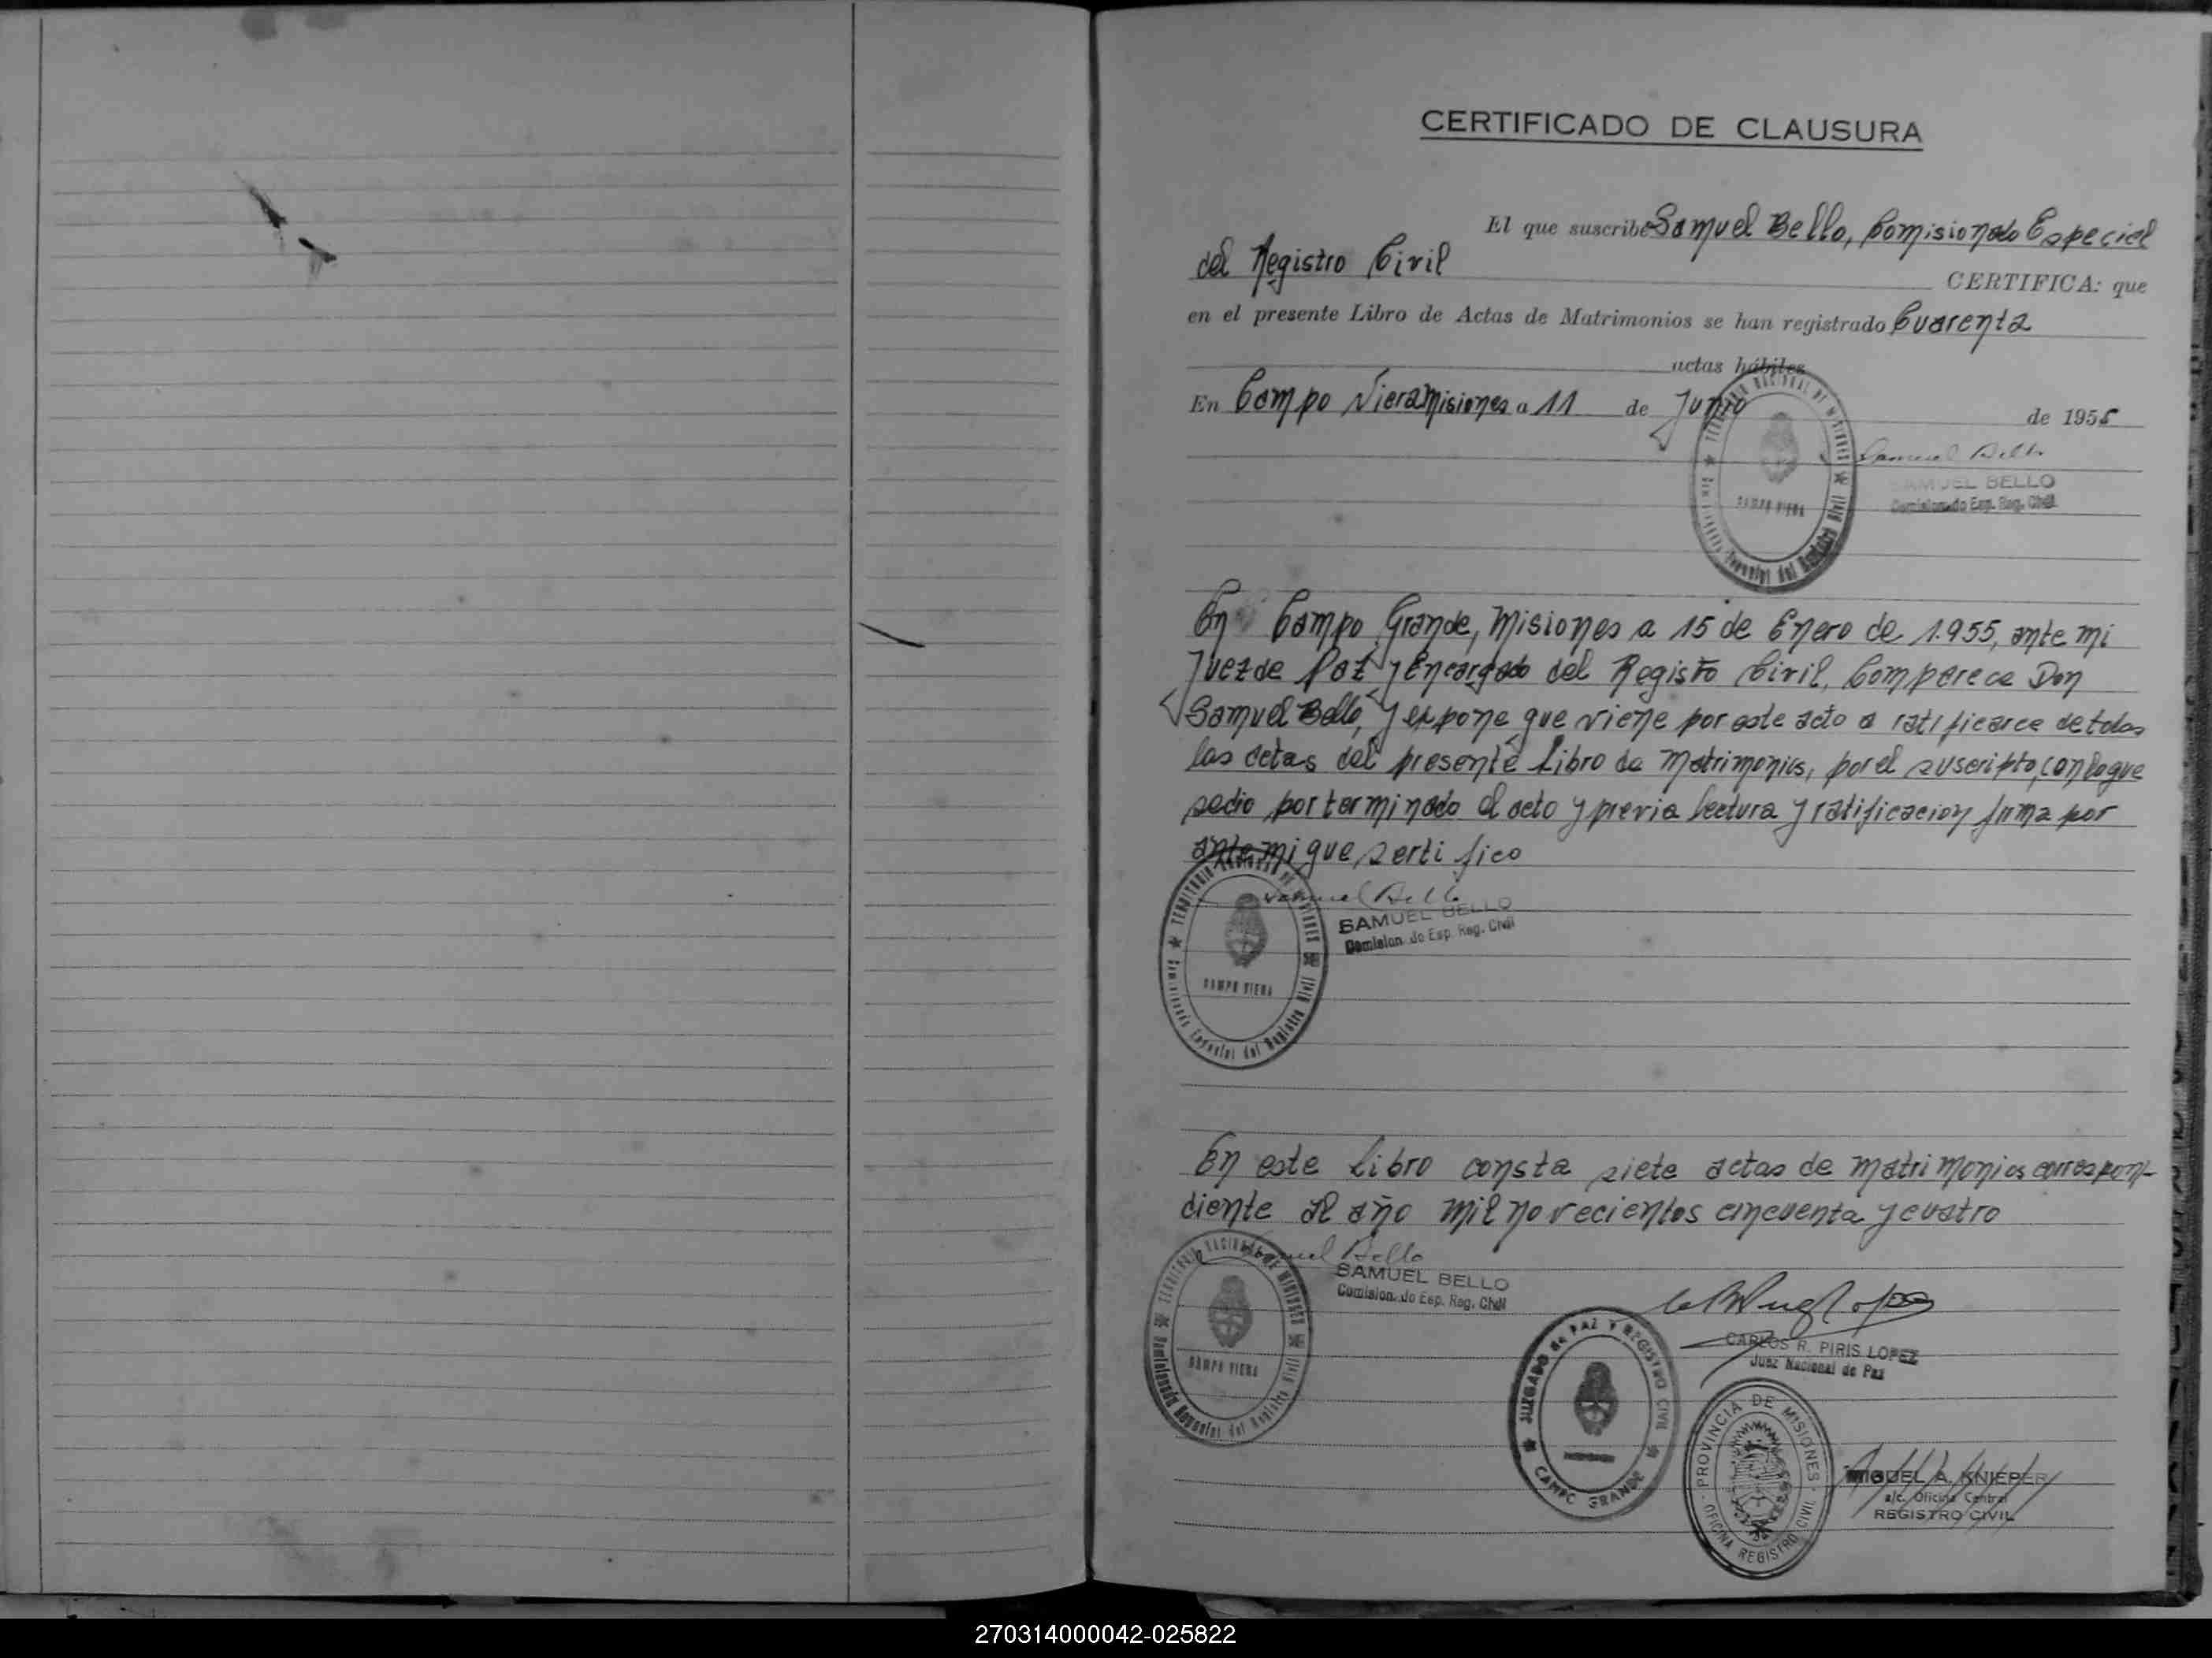 CERTIFICADO DE CLAUSURA
El que suscribe Samuel Bello, Comisionado Especial
del Registro Civil
CERTIFICA: que
en el presente Libro de Actas de Matrimonios se han registrado Cuarenta
actas hábiles
En Campo Viera Misiones a 11 de Junio de 1955
Samuel Bello
SAMUEL BELLO
Comisionado Esp. Reg. Civil
TERRITORIO NACIONAL DE MISIONES
CAMPO VIERA
Especial del Registro Civil
En Campo Grande, Misiones a 15 de Enero de 1.955, ante mi
Juez de Paz y Encargado del Registro Civil, Comparece Don
Samuel Bello, y expone que viene por este acto a ratificarce de todas
las actas del presente Libro de Matrimonios, por el suscripto, con lo que
se dio por terminado el acto y previa lectura y ratificacion firma por
ante mi que sertifico
Samuel Bello
SAMUEL BELLO
Comision.do Esp. Reg. Civil
TERRITORIO NACIONAL DE MISIONES
CAMPO VIERA
Especial del Registro Civil
En este Libro consta siete actas de matrimonios correspon-
diente al año mil novecientos cincuenta y cuatro
Samuel Bello
SAMUEL BELLO
Comision.do Esp. Reg. Civil
TERRITORIO NACIONAL DE MISIONES
CAMPO VIERA
Especial del Registro Civil
CARLOS R. PIRIS LOPEZ
Juez Nacional de Paz
JUZGADO de PAZ Y REGISTRO CIVIL
CAMPO GRANDE
PROVINCIA DE MISIONES
OFICINA REGISTRO CIVIL
MIGUEL A. KNIEPER
a/c. Oficina Central
REGISTRO CIVIL
270314000042-025822